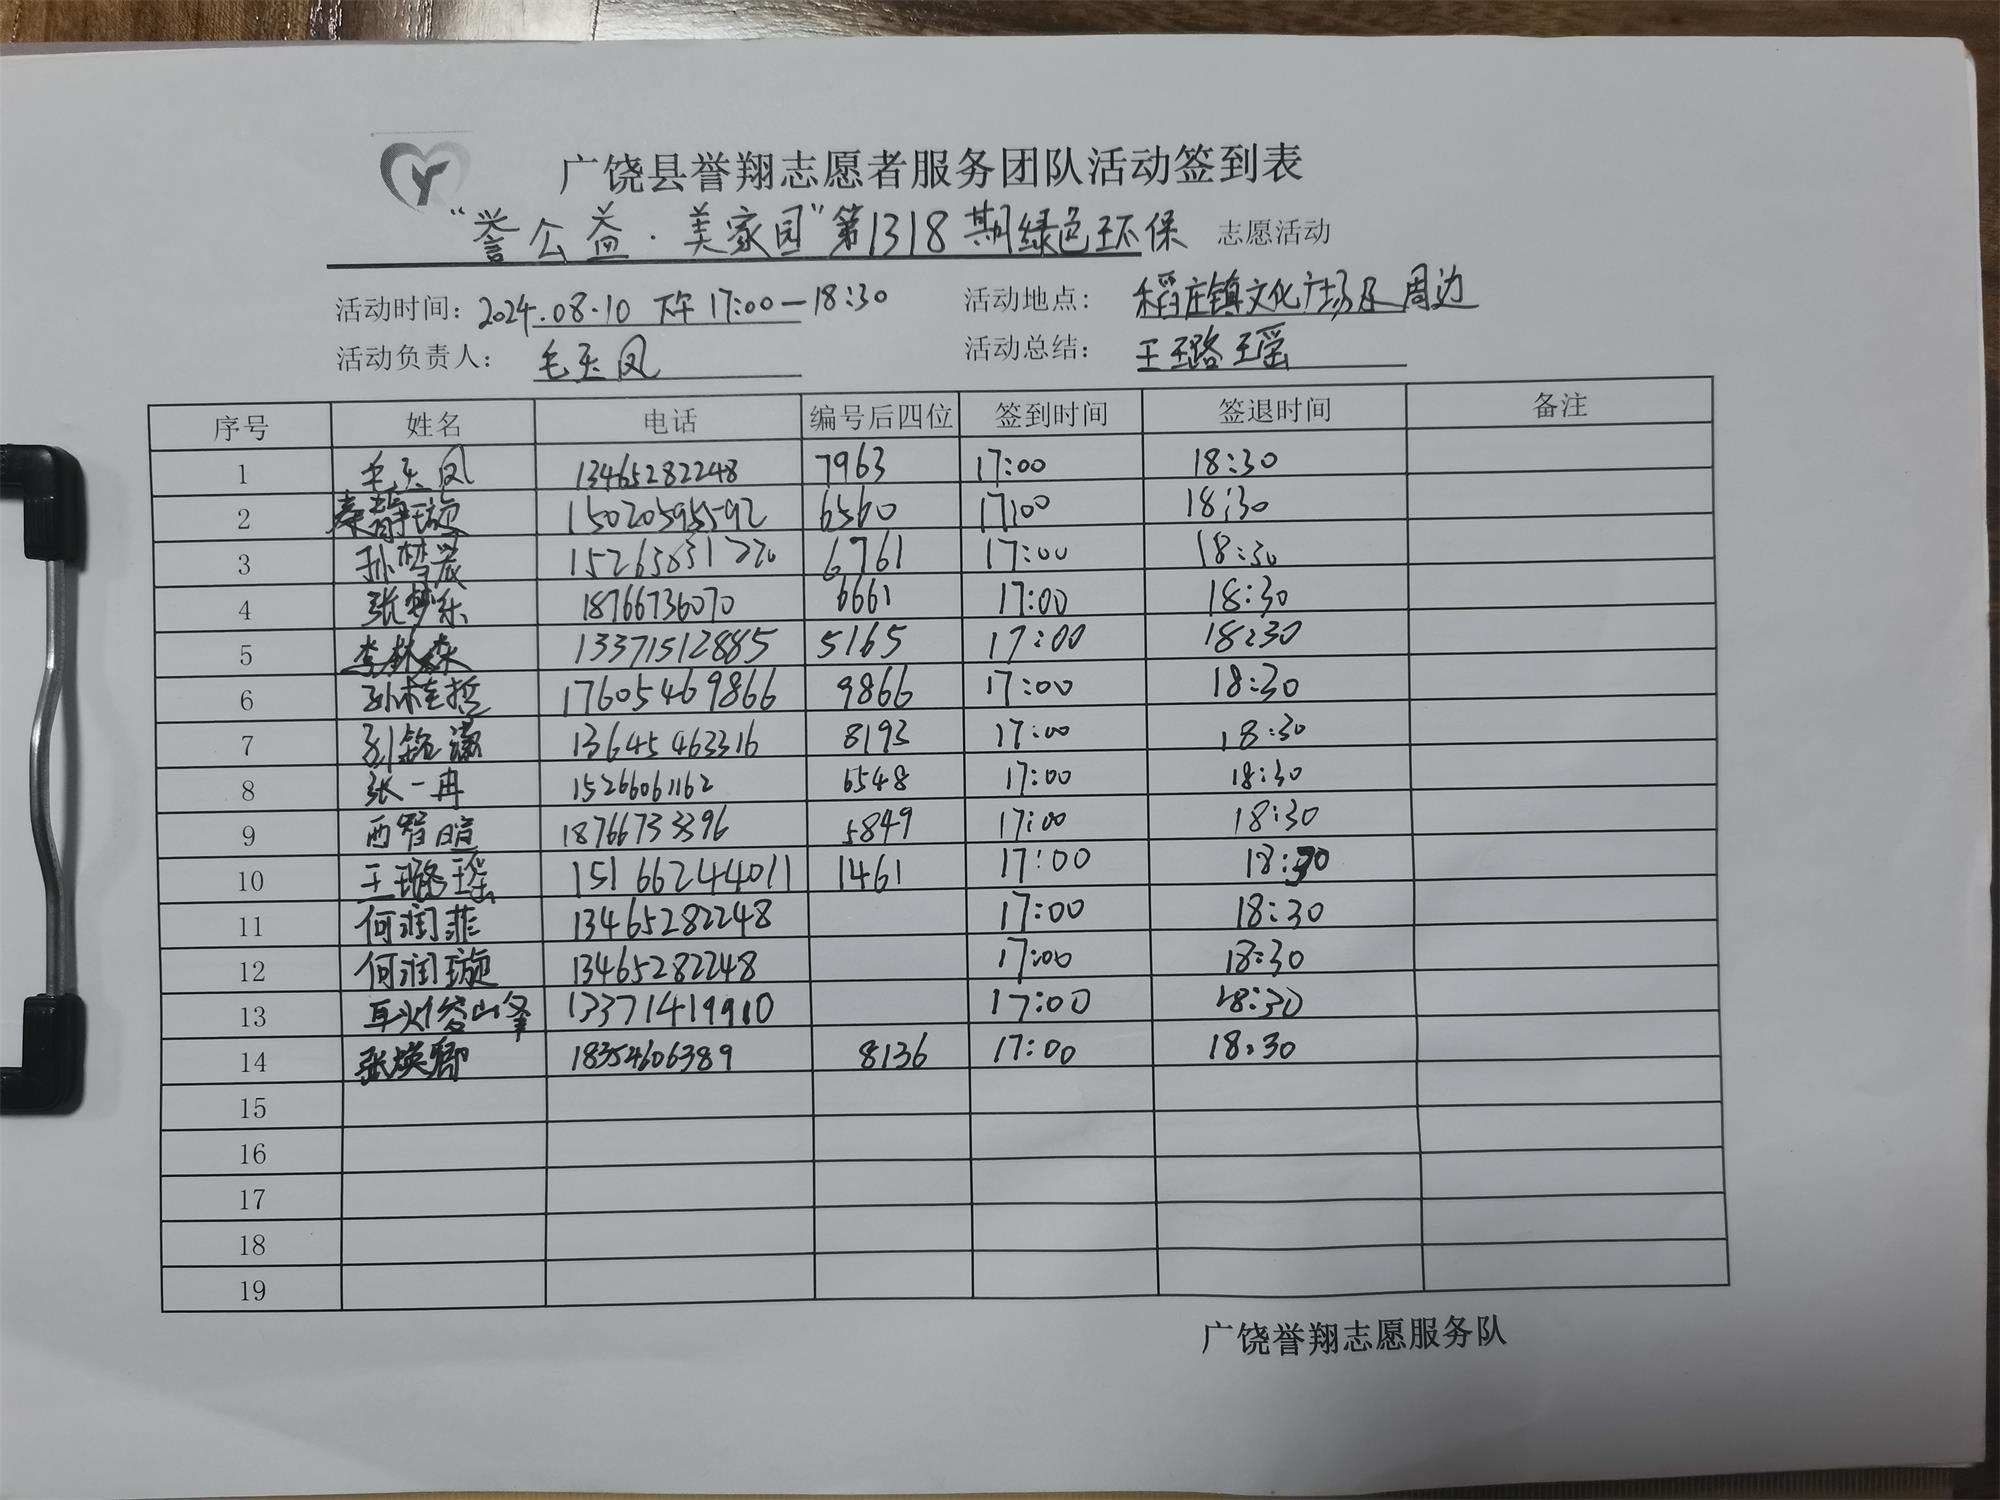 广饶县誉翔志愿者服务团队活动签到表
“誉公益·美家园”第1318期绿色环保 志愿活动
活动时间：2024.08.10 下午 17:00—18:30 活动地点：稻庄镇文化广场及周边
活动负责人：毛玉凤 活动总结：王璐瑶
序号 姓名 电话 编号后四位 签到时间 签退时间 备注
1 毛玉凤 13465282248 7963 17:00 18:30
2 秦静璇 15020595592 6560 17:00 18:30
3 孙梦宸 15263831220 6761 17:00 18:30
4 张梦乐 18766736070 6661 17:00 18:30
5 李林森 13371512885 5165 17:00 18:30
6 孙桂哲 17605469866 9866 17:00 18:30
7 13645463316 8193 17:00 18:30
8 张一冉 15266061162 6548 17:00 18:30
9 西智暄 18766733396 5849 17:00 18:30
10 王璐瑶 15166244011 1461 17:00 18:30
11 何润菲 13465282248 17:00 18:30
12 何润璇 13465282248 17:00 18:30
13 耿俊峰 13371419910 17:00 18:30
14 张焕卿 18354606389 8136 17:00 18:30
15
16
17
18
19
广饶誉翔志愿服务队